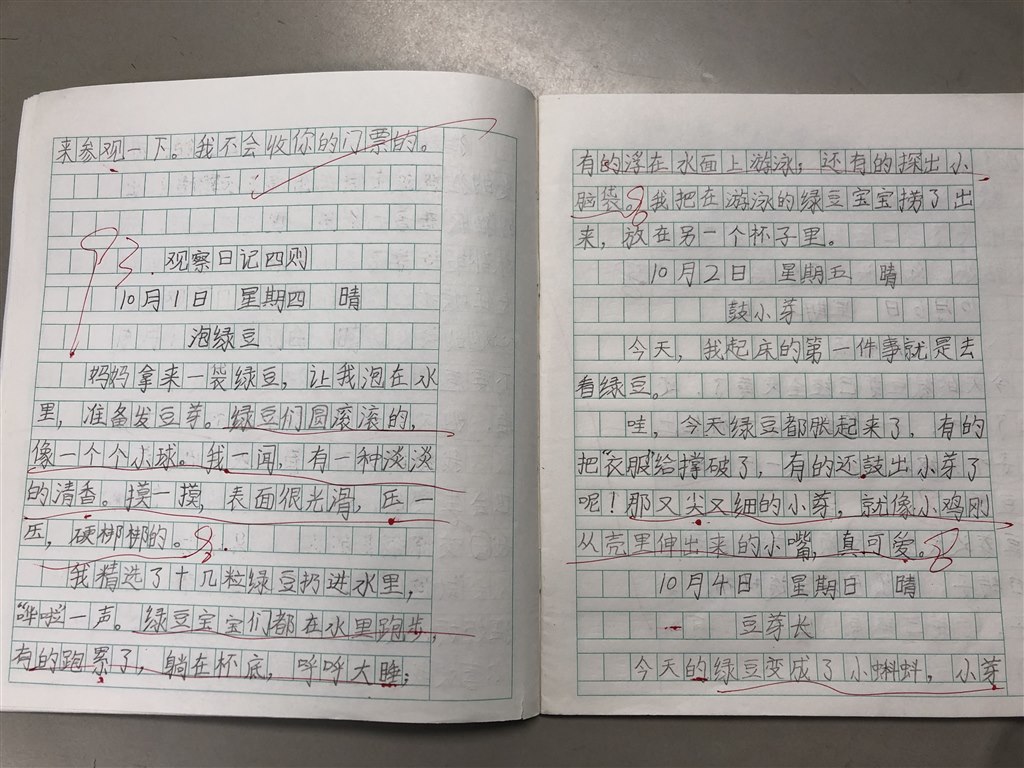 来参观一下。我不会收你的门票的。
93
观察日记四则
10月1日 星期四 晴
泡绿豆
妈妈拿来一袋绿豆，让我泡在水
里，准备发豆芽。绿豆们圆滚滚的，
像一个个小球。我一闻，有一种淡淡
的清香。摸一摸，表面很光滑，压一
压，硬梆梆的。
我精选了十几粒绿豆扔进水里，
“哗啦”一声。绿豆宝宝们都在水里跑步，
有的跑累了，躺在杯底，呼呼大睡；
有的浮在水面上游泳；还有的探出小
脑袋。我把在游泳的绿豆宝宝捞了出
来，放在另一个杯子里。
10月2日 星期五 晴
鼓小芽
今天，我起床的第一件事就是去
看绿豆。
哇，今天绿豆都胀起来了，有的
把“衣服”给撑破了，有的还鼓出小芽了
呢！那又尖又细的小芽，就像小鸡刚
从壳里伸出来的小嘴，真可爱。
10月4日 星期日 晴
豆芽长
今天的绿豆变成了小蝌蚪，小芽